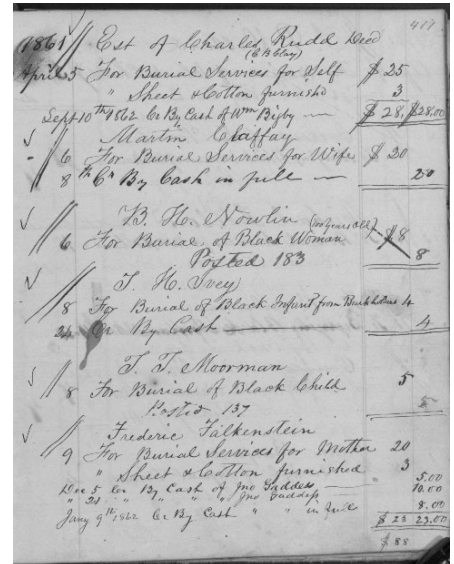 417
(1861) Est of Charles Rudd Decd
(C B Clay)
April 5 For Burial Services for Self $ 25
" Sheet & Cotton furnished 3
Sept 10th 1862 Cr By Cash of Wm Bigby — $ 28, $28.00
Martin Claffay
6 For Burial Services for Wife $ 20
8th Cr By Cash in full — 20
B. H. Nowlin (100 years old)
6 For Burial of Black Woman $8
Posted 183 8
T. H. Ivey
8 For Burial of Black Infant from 4
24 Cr By Cash 4
T. T. Moorman
8 For Burial of Black Child 5
Posted 137 5
Frederic Falkenstein
9 For Burial Services for Mother 20
" Sheet & Cotton furnished 3
Dec 5 Cr By Cash of Jno Gaddess — 5.00
" 24 " " " " Jno Gaddess 10.00
Jany 9th 1862 Cr By Cash " " in full 8.00
$ 23 23.00
$ 88